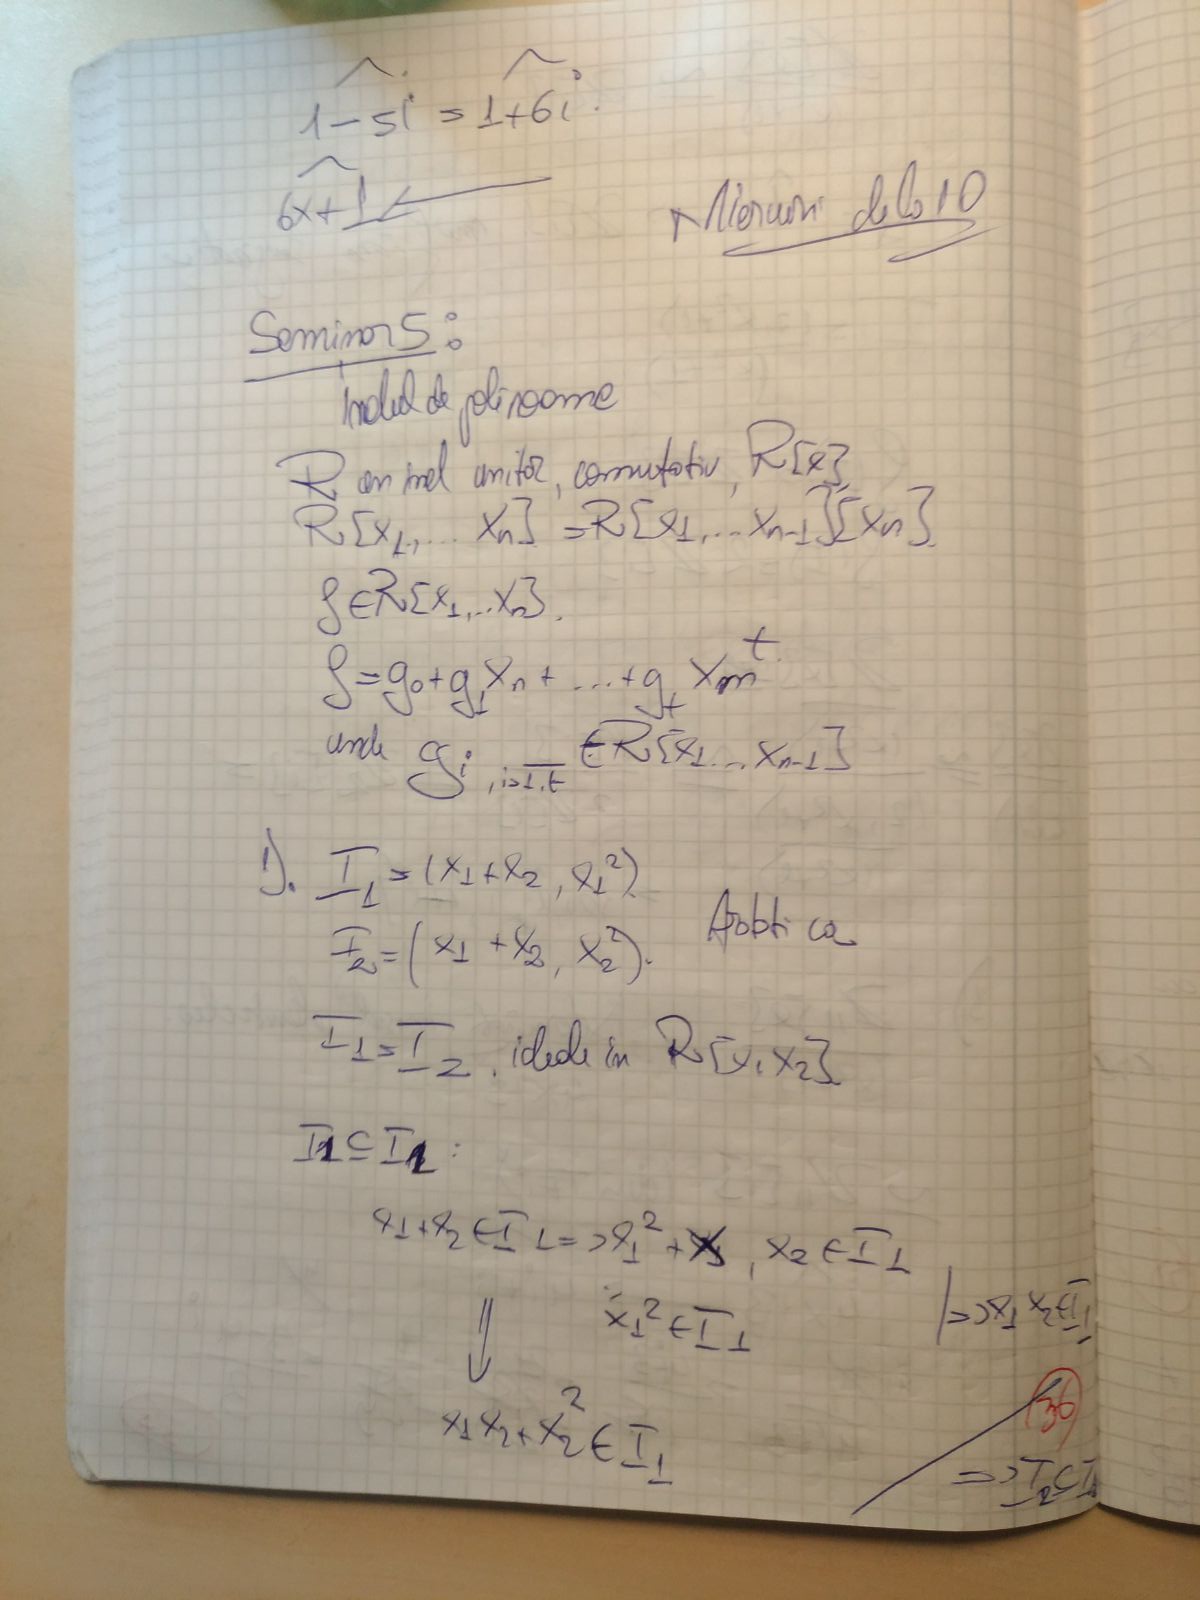 1-5i = 1+6i.
6x+1
Miercuri de la 10
Seminar 5:
Inelul de polinoame
R un inel unitar, comutativ, R[x]
R[x1,... xn] = R[x1,... xn-1][xn].
f ∈ R[x1,..xn].
f = g0 + g1 xn + ... + gt xm^t.
unde gi, i=1,t ∈ R[x1... xn-1]
1). I1 = (x1+x2, x1²)
I2 = (x1 + x2, x2²). Arătați ca
I1 = I2, ideale in R[x1 x2]
⊆
x1+x2 ∈ I1 => x1² + x1, x2 ∈ I1
x1² ∈ I1 | => x1 x2 ∈ I1
⇓
x1x2 + x2² ∈ I1
=> I2 ⊆ I1
36